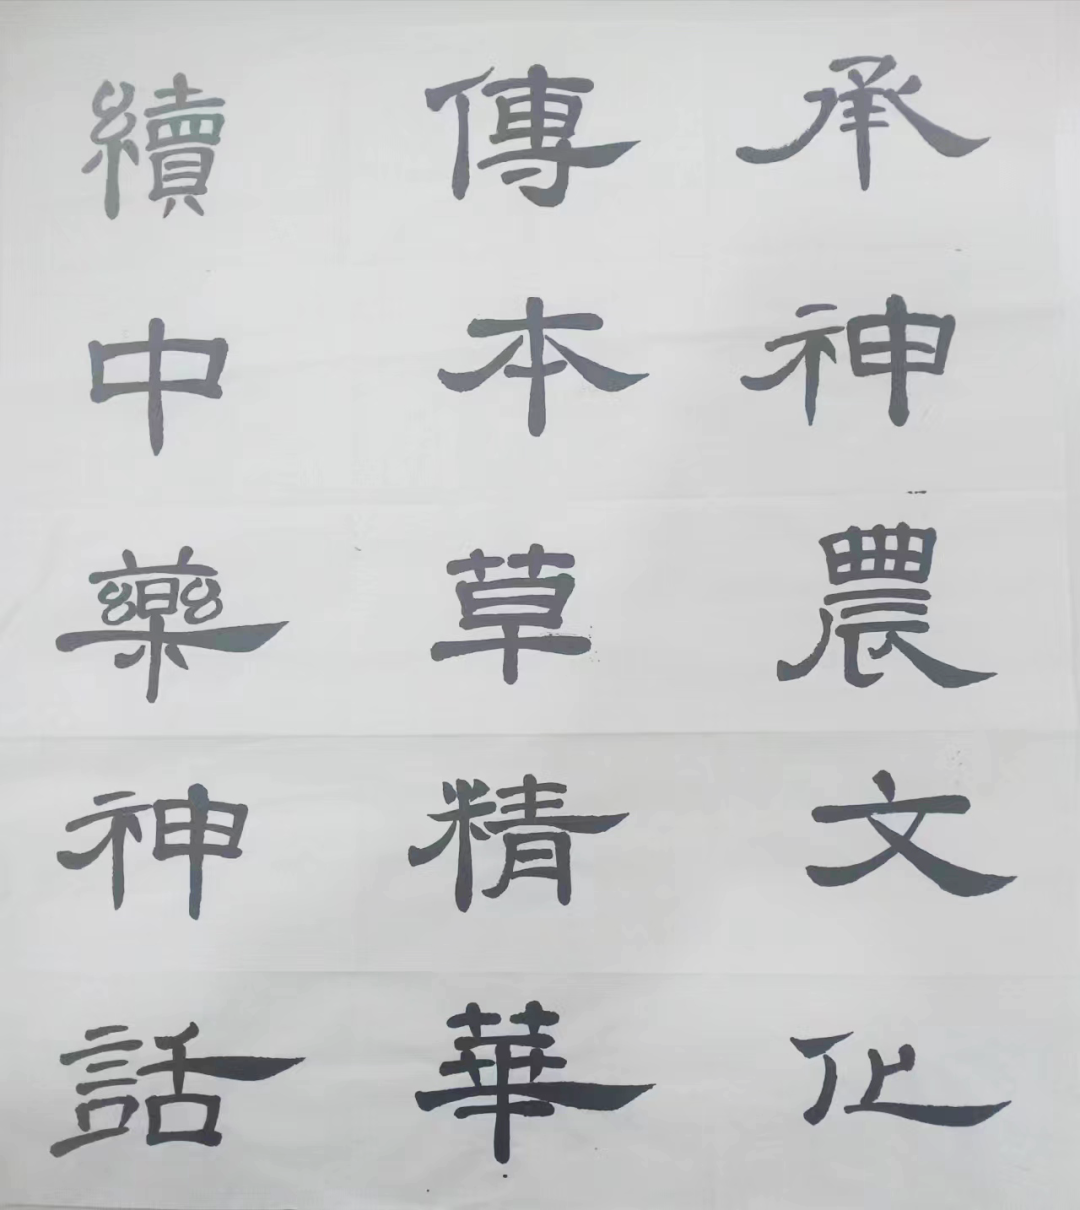 承神農文化
傳本草精華
續中藥神話